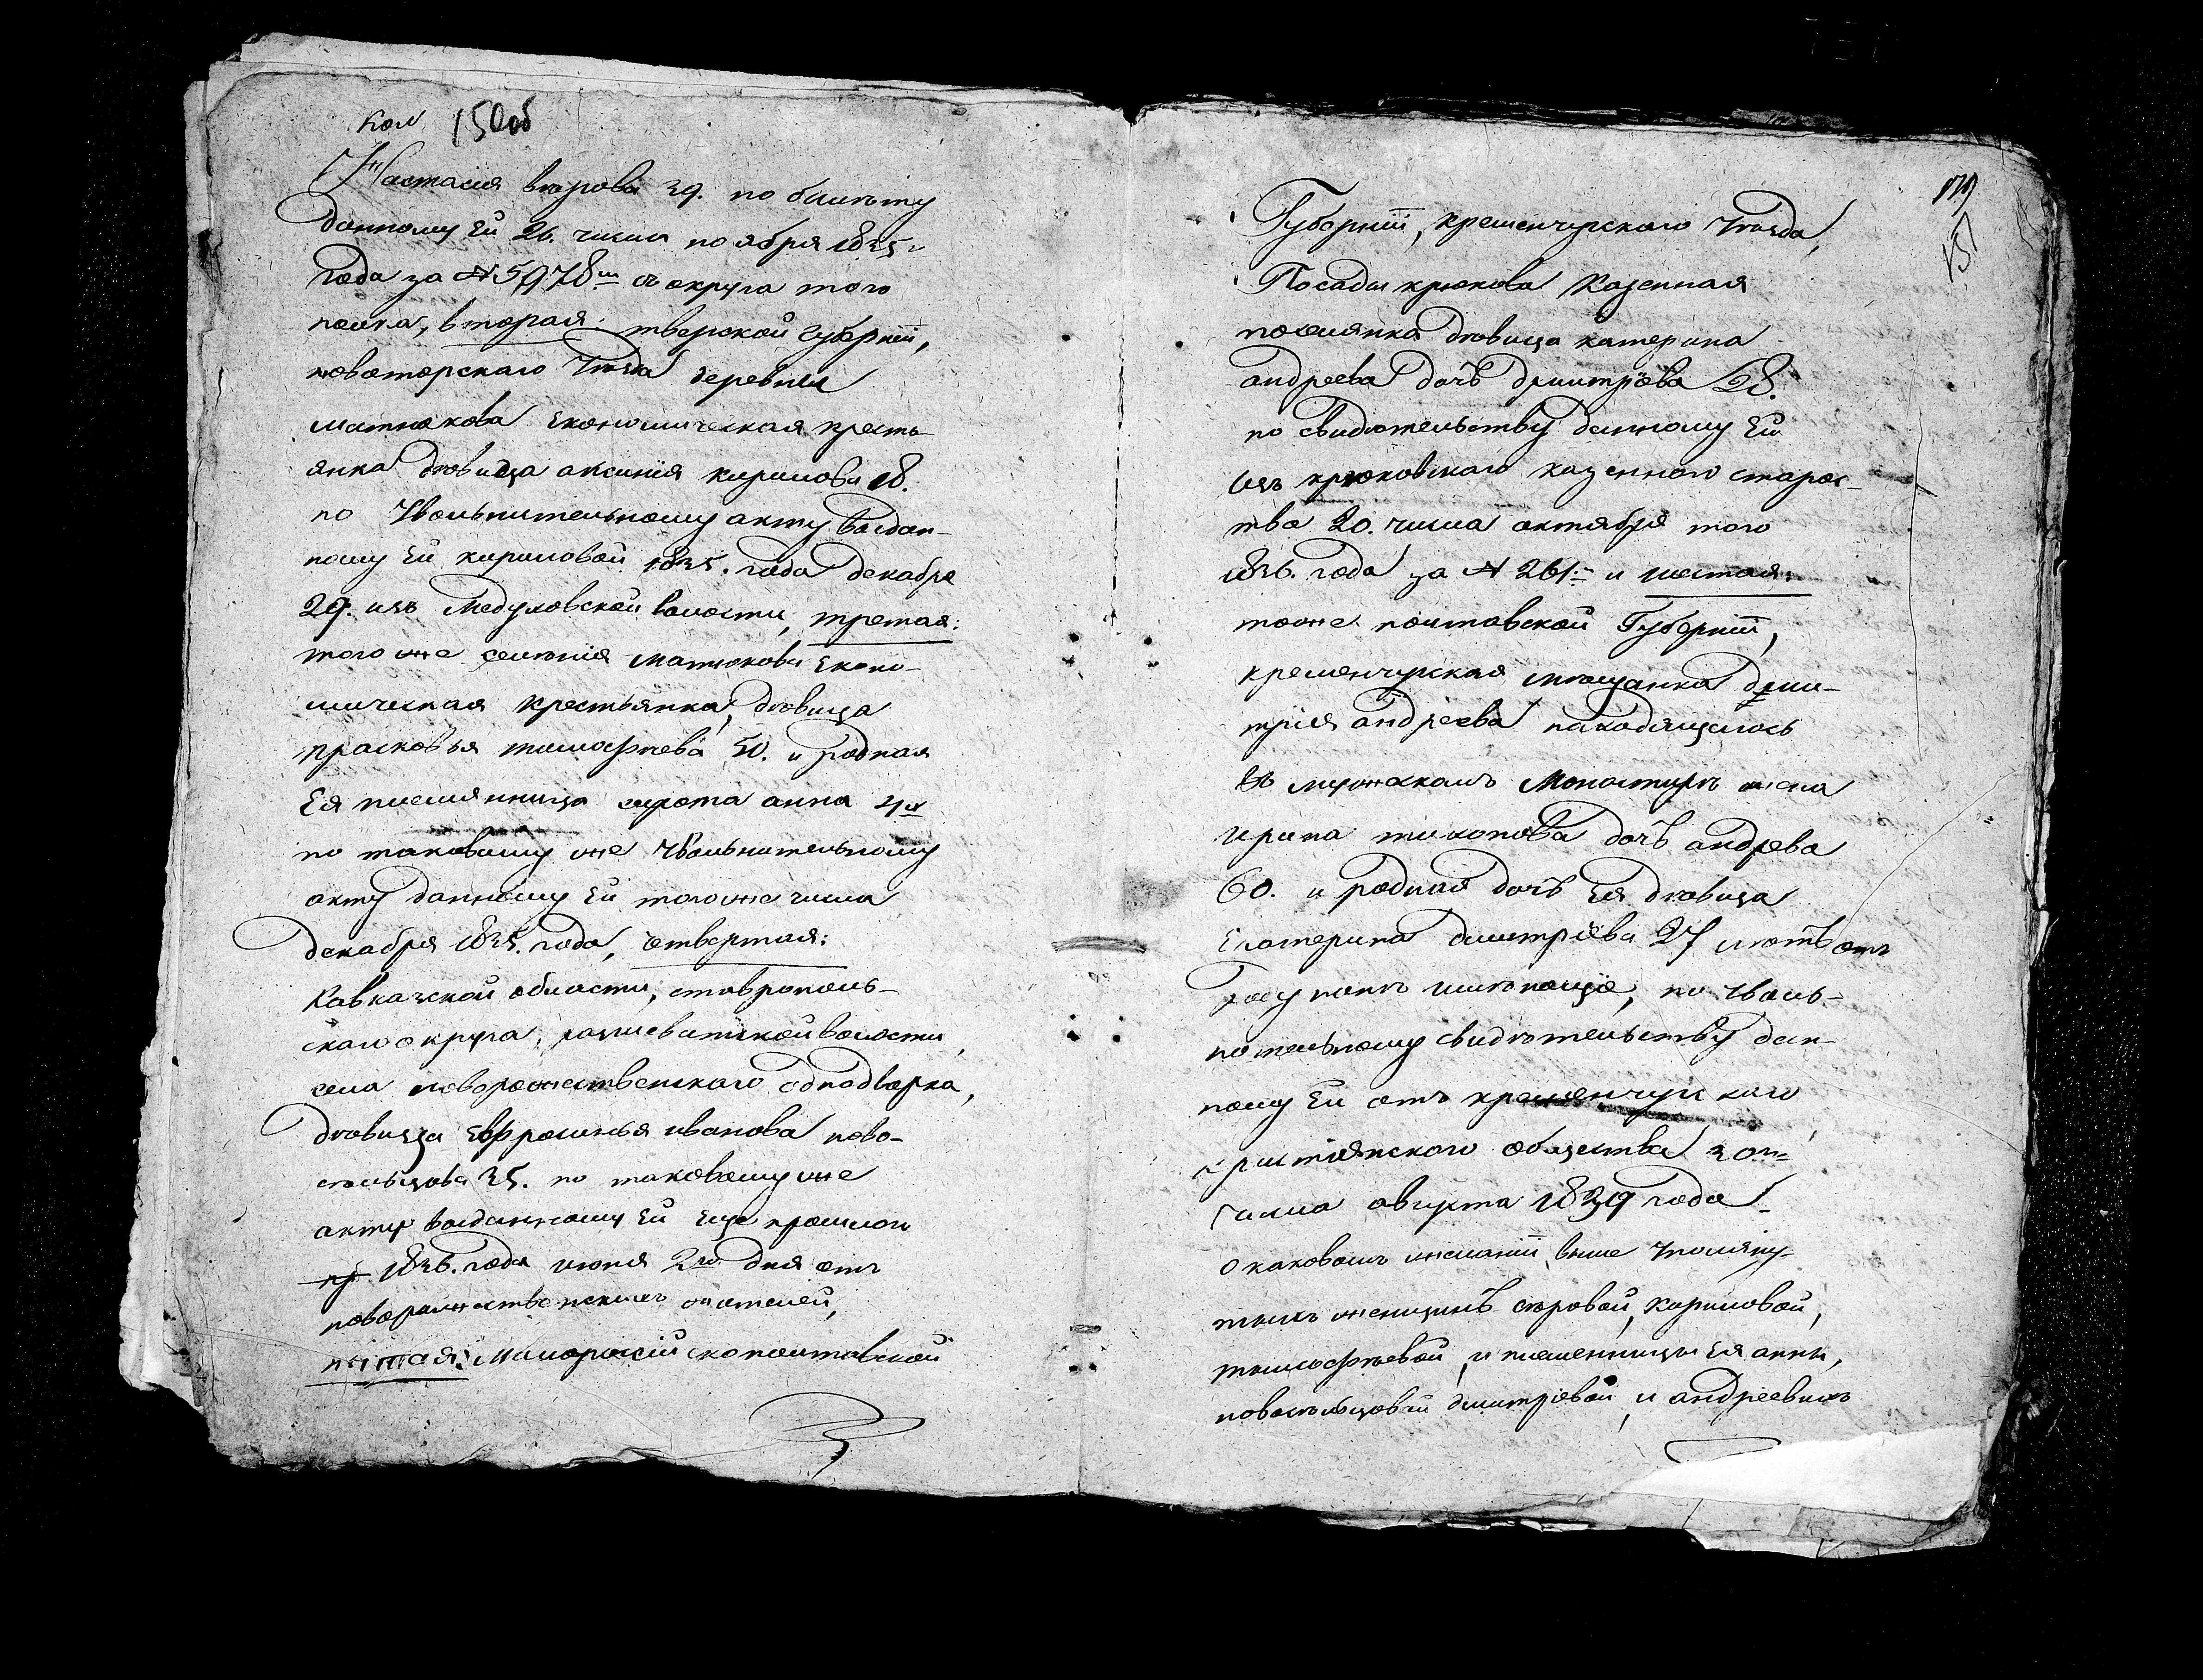 коп 150об
Настасия второва 39. по билѣту
данному Ей 26. числа ноября 1835.
года за № 5978м съ округа того
полка, вторая: тверской губерніи,
новоторскаго Уезда деревни
матюкова Економическая кресть-
янка дѣвица аксинія кирилова 18.
по Увольнительному акту выдан-
ному Ей кириловой 1835. года декабря
29. изъ Медуховской волости, третая:
того же селѣнія матюкова Еконо-
мическая крестьянка, дѣвица
прасковья тимофѣева 50. и родная
Ея племянница сирота анна 4х
по таковому же Увольнительному
акту данному Ей того же числа
декабря 1835. года, четвертая:
Кавказской области, ставрополь-
скаго округа, волости
села новорожественскаго однодворка,
дѣвица Евфросинья иванова ново-
сѣльцова 35. по таковому же
акту выданному Ей Еще прошлого
пр 1836. года июня 2го дня отъ
новорожественскихъ жителей,
пятая: Малоросій скополтавской
151
Губерніи, кременчугскаго Уѣзда,
Посада крюкова Казенная
поселянка дѣвица катерина
андреева дочь дмитрїева 28.
по свидѣтельству данному Ей
изъ крюковскаго казенного старос-
тва 20. числа октября того
1836. года за № 261. и шестая:
тоже полтавской Губерніи,
кременчугская мѣщанка дми-
трия андреева находящегось
въ мужскомъ Монастырѣ жена
ирина тихонова дочь андрева
60. и родная дочь Ея дѣвица
Екатерина дмитріева 27 лѣтъ отъ
роду имѣющїе, по Уволь-
нительному свидѣтельству дан-
ному Ей отъ кременчугскаго
християнского общества 30го
числа августа 1839 года
О каковомъ желаніи выше Упомяну-
тыхъ женщинъ кириловой,
тимофѣевой, и племенницы Ея анны,
новосѣльцовой дмитріевой, и андреевыхъ